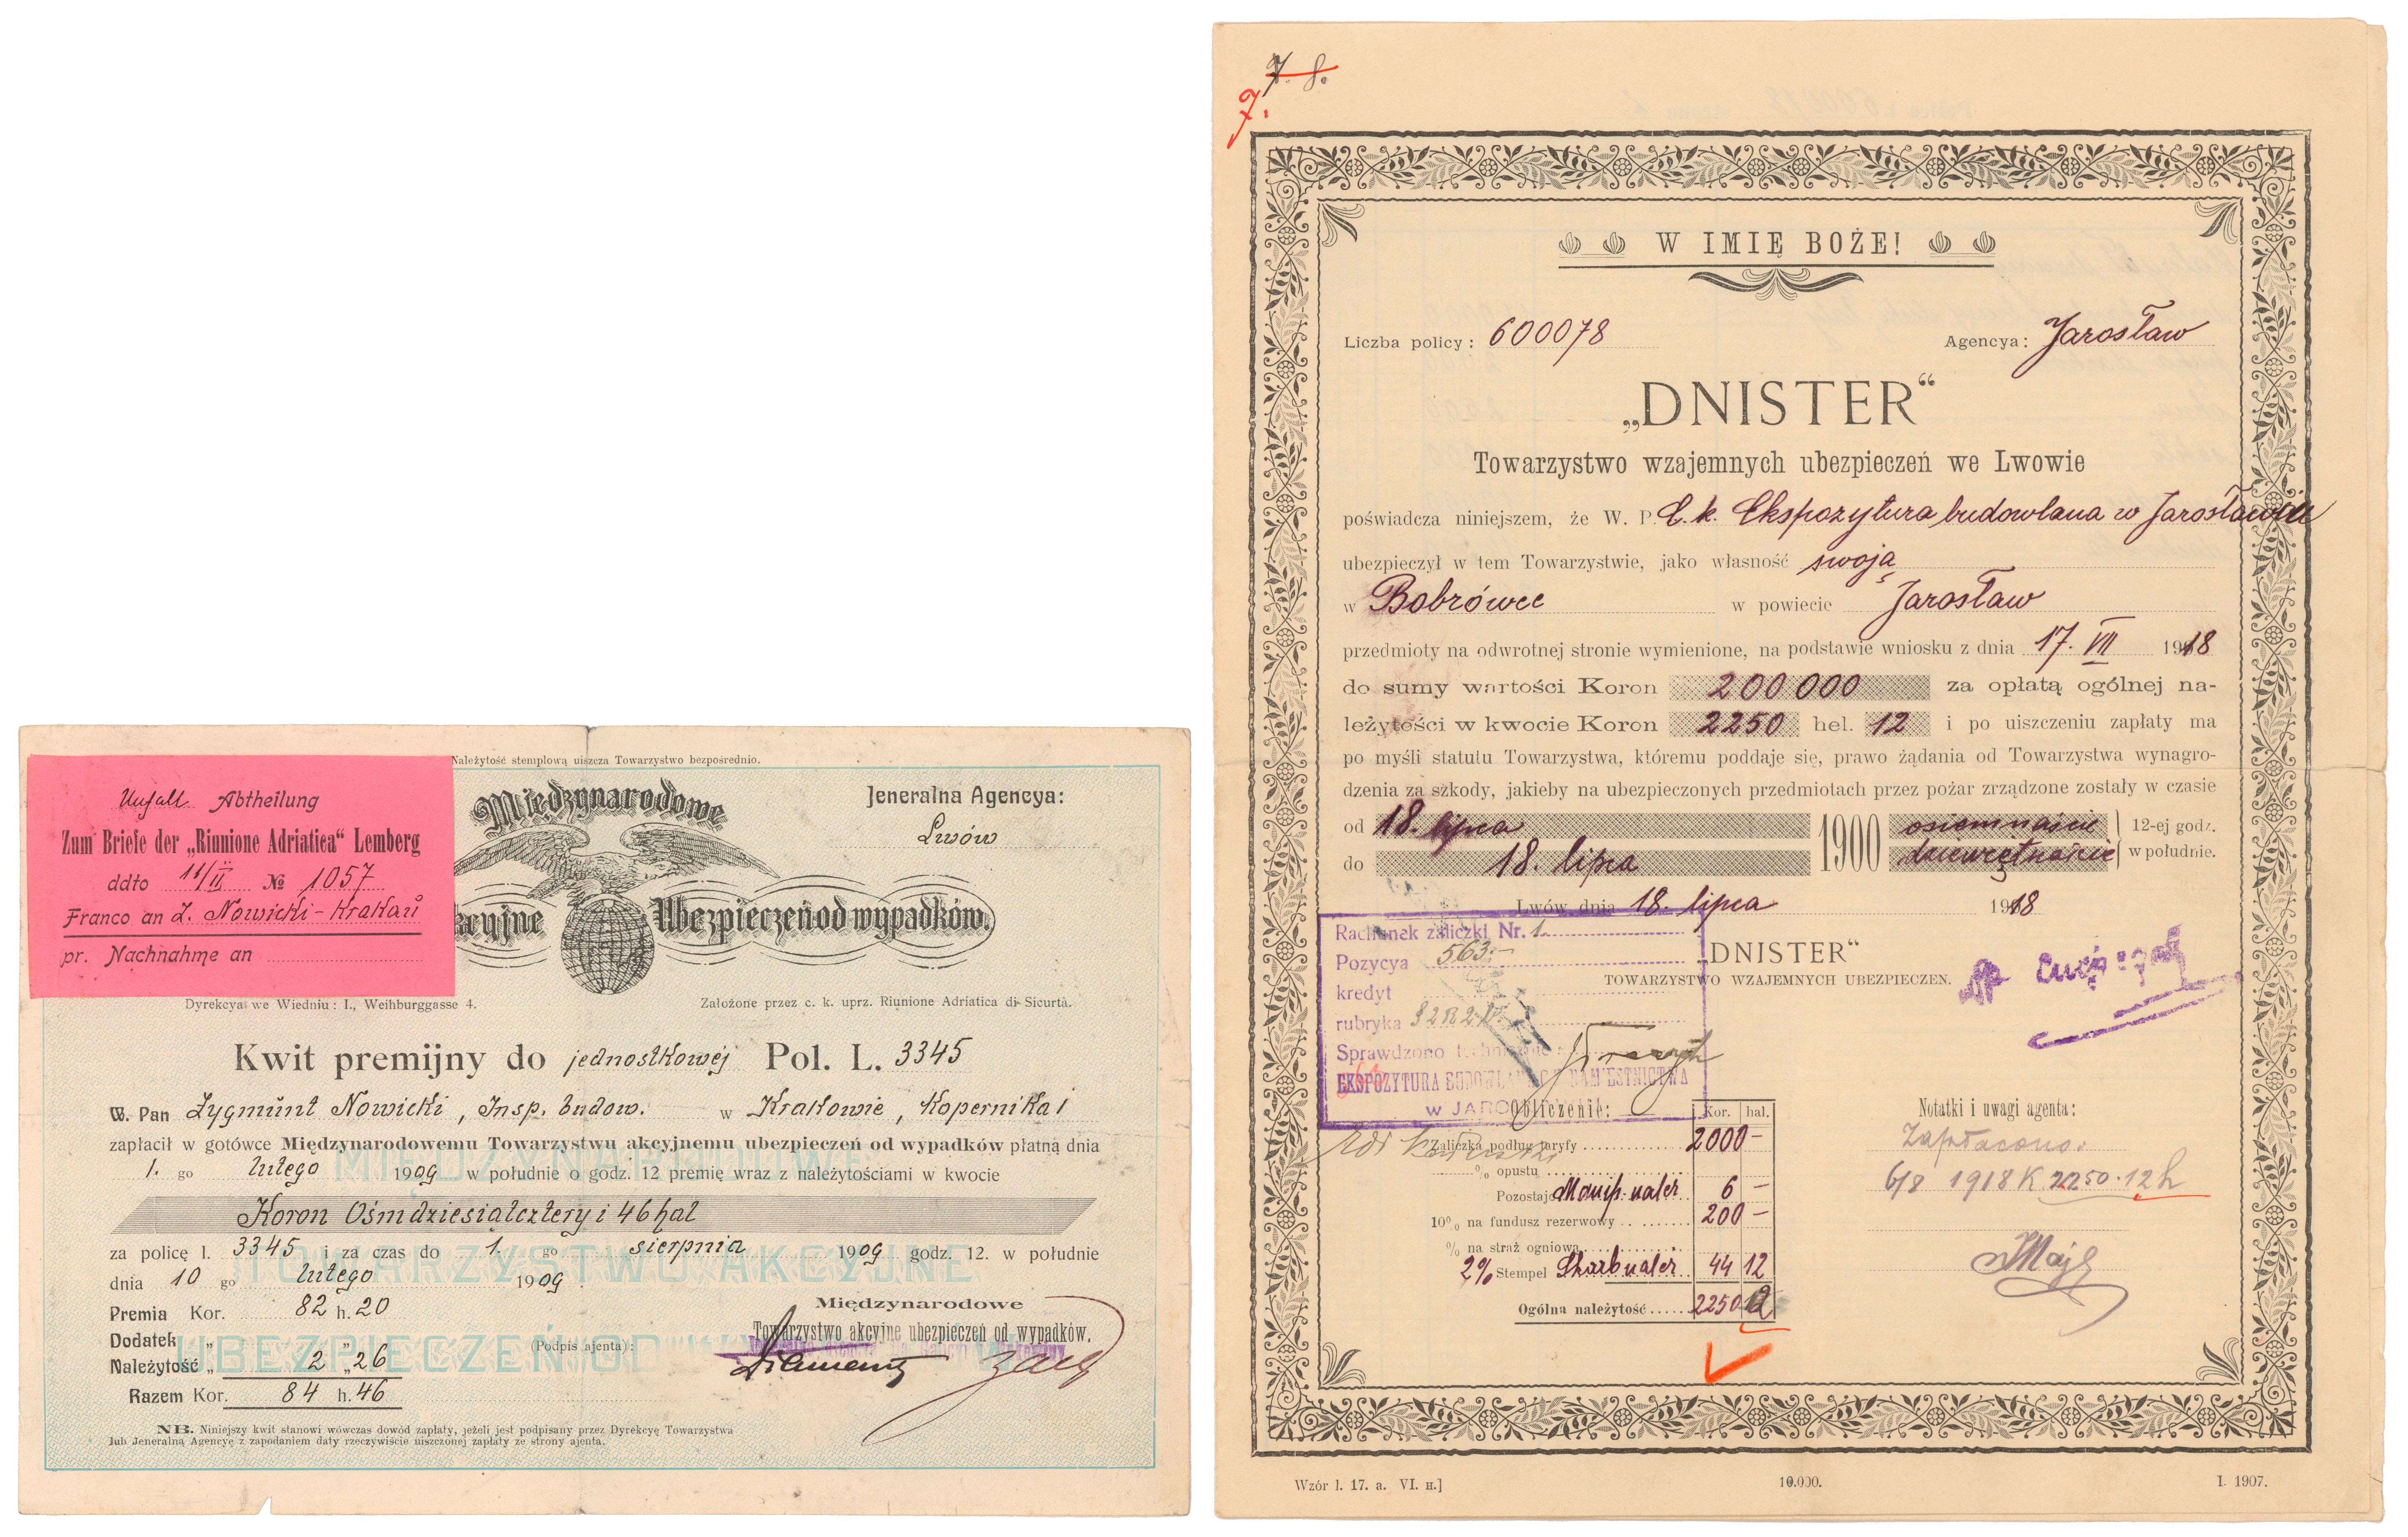 Należytość stemplową uiszcza Towarzystwo bezpośrednio.
Unfall Abtheilung
Zum Briefe der „Riunione Adriatica“ Lemberg
ddto 11/II № 1057
Franco an Z. Nowicki - Krakau
pr. Nachnahme an
Międzynarodowe
Jeneralna Agencya:
Lwów
Ubezpieczeń od wypadków.
Dyrekcya we Wiedniu: I., Weihburggasse 4.
Założone przez c. k. uprz. Riunione Adriatica di Sicurtà.
Kwit premijny do jednostkowej Pol. L. 3345
W. Pan Zygmunt Nowicki, Insp. budow. w Krakowie, Kopernika 1
zapłacił w gotówce Międzynarodowemu Towarzystwu akcyjnemu ubezpieczeń od wypadków płatną dnia
1. go lutego 1909 w południe o godz. 12 premię wraz z należytościami w kwocie
Koron Ośmdziesiątcztery i 46 hal
za policę l. 3345 i za czas do 1. go sierpnia 1909 godz. 12. w południe
dnia 10 go lutego 1909.
MIĘDZYNARODOWE
TOWARZYSTWO AKCYJNE
UBEZPIECZEŃ OD
Premia Kor. 82 h. 20
Dodatek „ „
Należytość „ 2 „ 26
Razem Kor. 84 h. 46
(Podpis ajenta):
Międzynarodowe
Towarzystwo akcyjne ubezpieczeń od wypadków.
NB. Niniejszy kwit stanowi wówczas dowód zapłaty, jeżeli jest podpisany przez Dyrekcyę Towarzystwa
lub Jeneralną Agencyę z zapodaniem daty rzeczywiście uiszczonej zapłaty ze strony ajenta.
7. 8.
7.
W IMIĘ BOŻE!
Liczba policy: 600078
Agencya: Jarosław
„DNISTER“
Towarzystwo wzajemnych ubezpieczeń we Lwowie
poświadcza niniejszem, że W. P. C. k. Ekspozytura budowlana w Jarosławiu
ubezpieczył w tem Towarzystwie, jako własność swoją
w Bobrówce w powiecie Jarosław
przedmioty na odwrotnej stronie wymienione, na podstawie wniosku z dnia 17. VII 1918
do sumy wartości Koron 200 000 za opłatą ogólnej na-
leżytości w kwocie Koron 2250 hel. 12 i po uiszczeniu zapłaty ma
po myśli statutu Towarzystwa, któremu poddaje się, prawo żądania od Towarzystwa wynagro-
dzenia za szkody, jakieby na ubezpieczonych przedmiotach przez pożar zrządzone zostały w czasie
od 18. lipca 1900 osiemnaście 12-ej godz.
do 18. lipca dziewiętnaście w południe.
Lwów dnia 18. lipca 1918
Rachunek zaliczki Nr. 1
Pozycya 563.-
kredyt
rubryka
Sprawdzono technicznie
EKSPOZYTURA BUDOWLANA C. K. NAMIESTNICTWA
W JAROSŁAWIU
„DNISTER“
TOWARZYSTWO WZAJEMNYCH UBEZPIECZEN.
Obliczenie: Kor. hal.
Zaliczka podług taryfy 2000 -
% opustu
Pozostaje Manip. należ. 6 -
10% na fundusz rezerwowy 200 -
% na straż ogniową
2% Stempel Skarb należ. 44 12
Ogólna należytość 2250 12
Notatki i uwagi agenta:
Zapłacono:
6/8 1918 K 2250.12 h
Wzór l. 17. a. VI. н.]
10.000.
I. 1907.